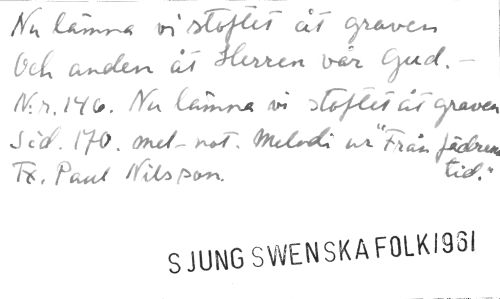 Nu lämna vi stoftet åt graven
Och anden åt Herren vår Gud. –
N:r. 146. Nu lämna vi stoftet åt graven
Sid. 170. mel-not. Melodi ur "Från fädrens
Tx. Paul Nilsson. tid."
SJUNG SWENSKA FOLK 1961